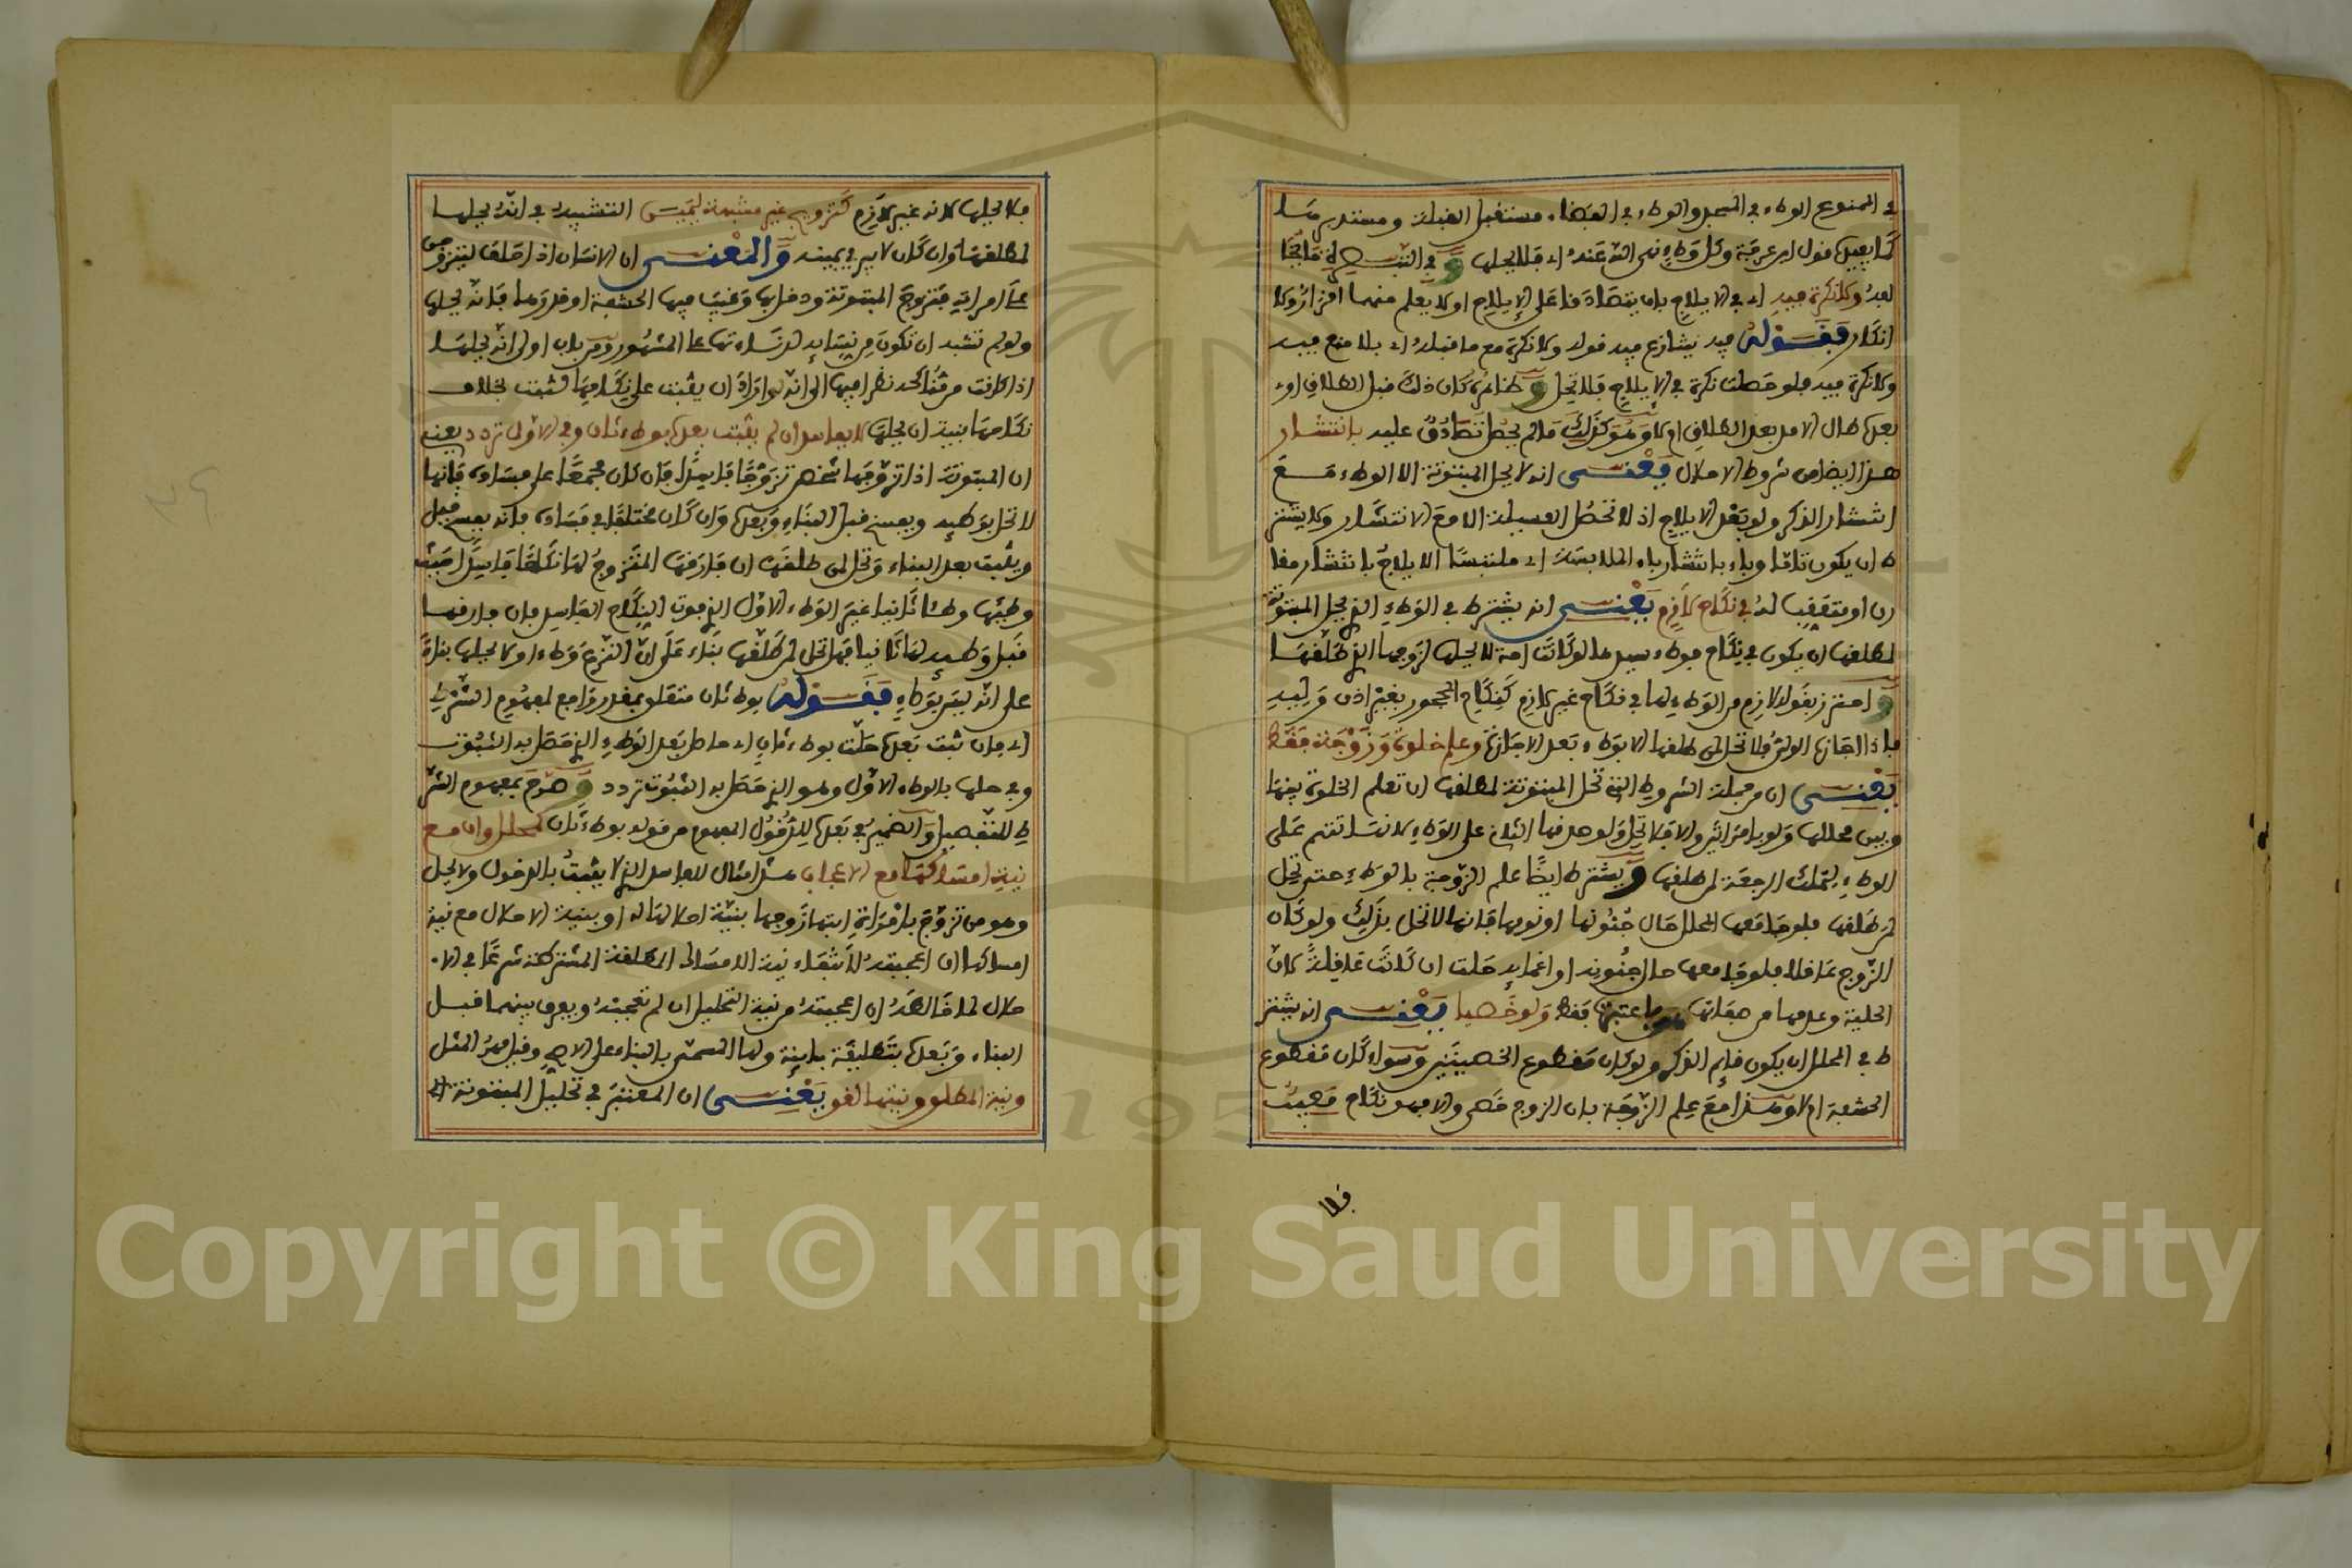 في الممنوع الوطء في المسجد والوطء في الفضاء مستقبل القبلة ومستدبرها
كما يفيده قول ابن عرفة وكل وطء نهى الله عنه اي فلا يحلها و في
بعده ولا نكرة فيه اي في الايلاج بان يتصادقا على الايلاج او لا يعلم منهما اقرار ولا
انكار فقوله فيه يتنازع فيه قوله ولا نكرة مع ما قبله اي بلا منع فيه
ولا نكرة فيه فلو حصلت نكرة في الايلاج فلا تحل و ظاهره كان ذلك قبل الطلاق او
بعده طال الامر بعد الطلاق ام لا وهو كذلك ما لم يحصل تصادق عليه بانتشار
هذا ايضا من شروط الاحلال يعني انه لا يحل المبتوتة الا الوطء مع
انتشار الذكر ولو بعد الايلاج اذ لا تحصل العسيلة الا مع الانتشار ولا يشتر
ط ان يكون تاما وباء بانتشار باء الملابسة اي ملتبسا الايلاج بانتشار مقا
رن او متعقب له في نكاح لازم يعني انه يشترط في الوطء الذي يحل المبتوتة
لمطلقها ان يكون في نكاح فوطء سيدها لو كانت امة لا يحلها لزوجها الذي طلقها
و احترز بقوله لازم من الوطء لها في نكاح غير لازم كنكاح المحجور بغير اذن وليه
فاذا اجازه الولي فلا تحل لمن طلقها الا بوطء بعد الاجازة وعلم خلوة وزوجة فقط
يعني ان من جملة الشروط التي تحل المبتوتة لمطلقها ان تعلم الخلوة بينها
وبين محللها ولو بامرأتين والا فلا تحل ولو صدقها الثاني على الوطء لانها تتهم على
الوطء لتملك الرجعة لمن طلقها و يشترط ايضا علم الزوجة بالوطء حتى تحل
لمن طلقها فلو جامعها المحلل حال جنونها او نومها فانها لا تحل بذلك ولو كان
الزوج عاقلا فلو جامعها حال جنونه او اغمائه حلت ان كانت عاقلة لان
الحلية وعدمها من صفاتها فاعتبرت فقط ولو خصيا يعني انه يشتر
ط في المحلل ان يكون قائم الذكر ولو كان مقطوع الخصيتين وسواء كان مقطوع
الحشفة ام لا وهذا مع علم الزوجة بان الزوج خصي والا فهو نكاح معيب
فلا
فلا يحلها لانه غير لازم كتزويج غير مشبهة ليمين التشبيه في انه يحلها
لمطلقها وان كان لا يبر في يمينه و المعنى ان الانسان اذا حلف ليتزوجن
على امراته فتزوج المبتوتة ودخل بها وغيب فيها الحشفة او قدرها فانه يحلها
ولو لم تشبه ان تكون من نسائه لدناءتها على المشهور ومر باب اولى انه يحلها
اذا كانت من مناكحه نظرا فيها الى انه لو اراد ان يثبت على نكاحها لثبت بخلاف
نكاحها بنية ان يحلها لا بفاسد ان لم يثبت بعده بوطء ثان وفي الاول تردد يعني
ان المبتوتة اذا تزوجها شخص تزوجا فاسدا فان كان مجمعا على فساده فانها
لا تحل بوطئه ويفسخ قبل البناء وبعده وان كان مختلفا في فساده فانه يفسخ قبل
ويثبت بعد البناء وتحل لمن طلقها ان فارقها المتزوج لها نكاحا فاسدا حيث
وطئها وطئا ثانيا غير الوطء الاول الذي فوت النكاح الفاسد فان فارقها
قبل وطئه لها ثانيا فهل تحل لمن طلقها بناء على ان النزع وطء او لا يحلها بناء
على انه ليس بوطء فقوله بوطء ثان متعلق بمقدر راجع لمفهوم الشرط
اي فان ثبت بعده حلت بوطء ثان اي حاصل بعد الوطء الذي حصل به الثبوت
وفي حلها بالوطء الاول وهو الذي حصل به الثبوت تردد و صرح بمفهوم الشر
ط للتفصيل والضمير في بعده للدخول المفهوم من قوله بوطء ثان كمحلل وان مع
نية امساكها مع الاعجاب هذا مثال للفاسد الذي لا يثبت بالدخول ولا يحل
وهو من تزوج بامراة ابتها زوجها بنية احلالها له او بنية الاحلال مع نية
امساكها ان اعجبته لانتفاء نية الامساك المطلقة المشترطة شرعا في الا
حلال لما خالطه ان اعجبته من نية التحليل ان لم تعجبه ويفرق بينهما قبل
البناء وبعده بتطليقة باينة ولها المسمى بالبناء على الاصح وقيل مهر المثل
ونية المطلق ونيتها لغو يعني ان المعتبر في تحليل المبتوتة